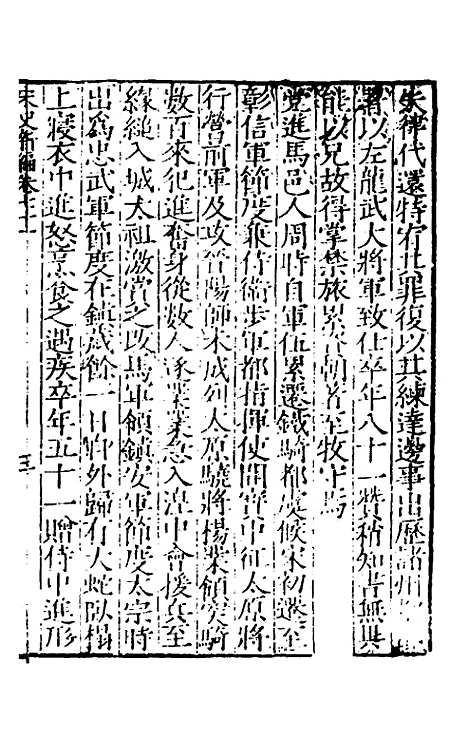 失律代還特宥其罪復以其練達邊事出歷諸州
署以左龍武大將軍致仕卒年八十一贊稍知書無異
能以兄故得掌禁旅累宿朝著至牧守焉
党進馬邑人周時自軍伍累遷鐵騎都虞候宋初遷至
彰信軍節度兼侍衛步軍都指揮使開寶中征太原將
行營前軍及攻晉陽師未成列太原驍將楊業領突騎
數百來犯進奮身從數人逐業業急入湟中會援兵至
緣縋入城太祖激賞之改馬軍領鎮安軍節度太宗時
出為忠武軍節度在鎮歲餘一日自外歸有大蛇臥榻
上寢衣中進怒烹食之遇疾卒年五十一贈侍中進形
宋史新編卷七十
三